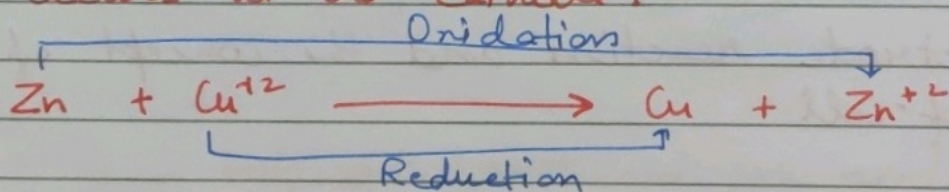 Oxidation
Zn + Cu+2 ⟶ Cu + Zn+2
Reduction